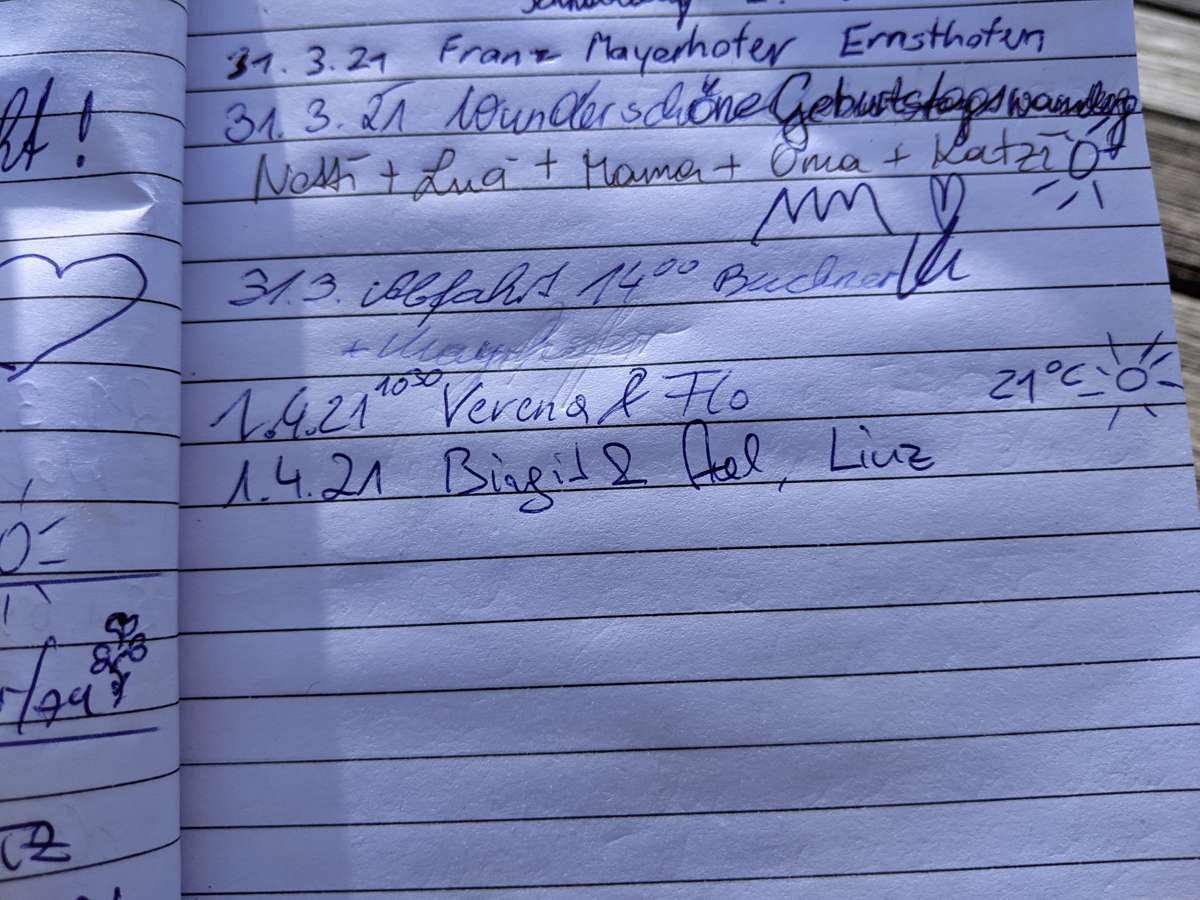 31.3.21 Franz Mayerhofer Ernsthofen
31.3.21 Wunderschöne Geburtstagswanderung
Netti + Lua + Mama + Oma + Katzi
31.3. Abfahrt 14⁰⁰ Buchner
+ Mayrhofer
1.4.21 10³⁰ Verena & Flo 21°C
1.4.21 Birgit & Axel, Linz